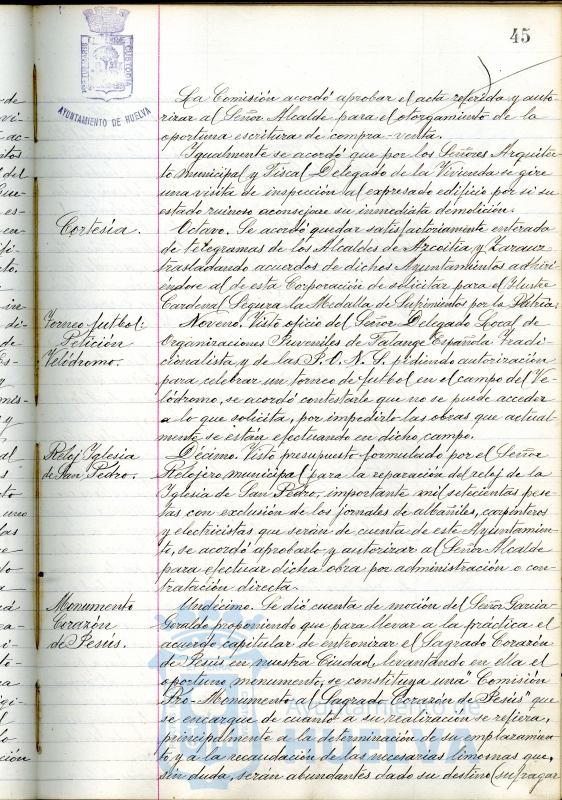 45
AYUNTAMIENTO DE HUELVA
La Comisión acordó aprobar el acta referida y auto-
rizar al Señor Alcalde para el otorgamiento de la
oportuna escritura de compra-venta.
Igualmente se acordó que por los Señores Arquitec-
to Municipal y Fiscal Delegado de la Vivienda se gire
una visita de inspección al expresado edificio por si su
estado ruinoso aconsejase su inmediata demolición.
Cortesía.
Octavo. Se acordó quedar satisfactoriamente enterada
de telegramas de los Alcaldes de Azcoitia y Zarauz
trasladando acuerdos de dichos Ayuntamientos adhiri-
éndose al de esta Corporación de solicitar para el Ilustre
Cardenal Segura la Medalla de Sufrimientos por la Patria.
Torneo futbol:
Petición
Velódromo.
Noveno. Visto oficio del Señor Delegado Local de
Organizaciones Juveniles de Falange Española Tradi-
cionalista y de las J.O.N.S. pidiendo autorización
para celebrar un torneo de futbol en el campo del Ve-
lódromo, se acordó contestarle que no se puede acceder
a lo que solicita, por impedirlo las obras que actual-
mente se están efectuando en dicho campo.
Reloj Iglesia
de San Pedro.
Décimo. Visto presupuesto formulado por el Señor
Relojero municipal para la reparación del reloj de la
Iglesia de San Pedro, importante mil setecientas pese-
tas con exclusión de los jornales de albañiles, carpinteros
y electricistas que serán de cuenta de este Ayuntamien-
to, se acordó aprobarlo y autorizar al Señor Alcalde
para efectuar dicha obra por administración o con-
tratación directa.
Monumento
Corazón
de Jesús.
Undécimo. Se dió cuenta de moción del Señor Garcia-
Geraldo proponiendo que para llevar a la práctica el
acuerdo capitular de entronizar el Sagrado Corazón
de Jesús en nuestra Ciudad, levantando en ella el
oportuno monumento, se constituya una "Comisión
Pro-Monumento al Sagrado Corazón de Jesús" que
se encargue de cuanto a su realización se refiera,
principalmente a la determinación de su emplazamien-
to y a la recaudación de las necesarias limosnas que,
sin duda, serán abundantes dado su destino (sufragar
Ayuntamiento de
HUELVA